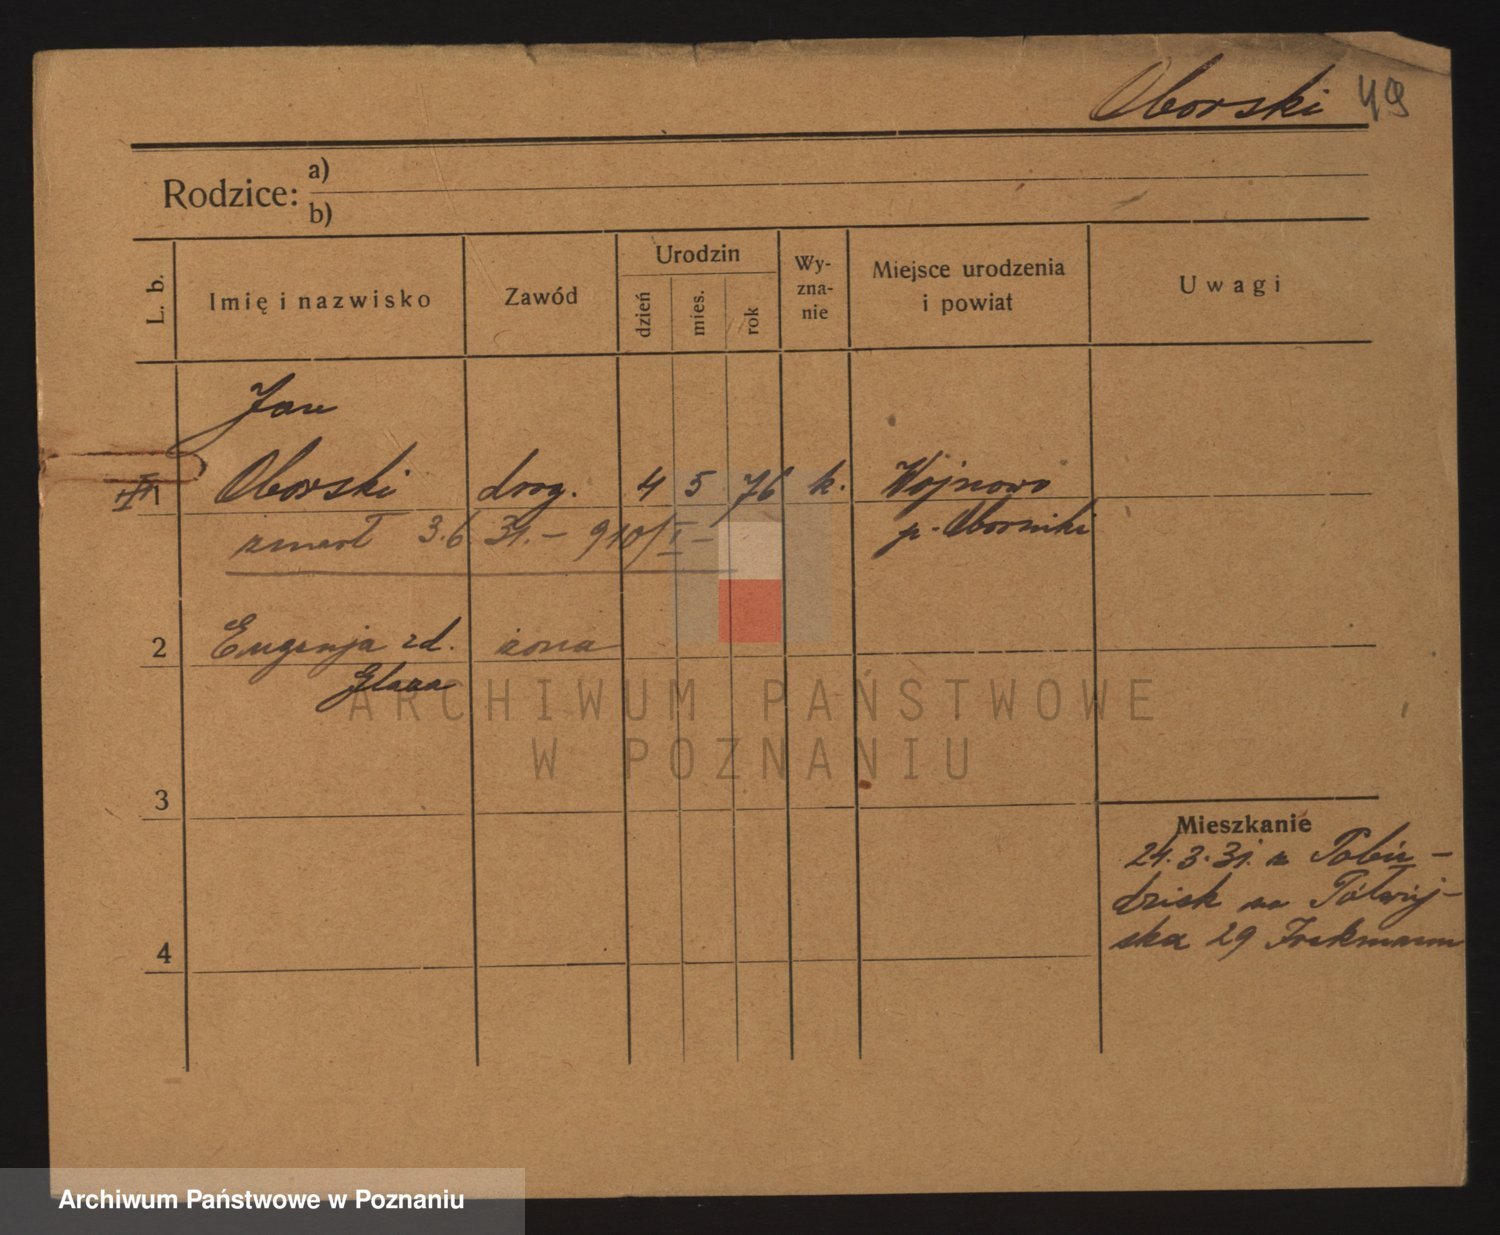 Oborski 49
Rodzice: a)
b)
L. b.
Imię i nazwisko
Zawód
Urodzin
dzień
mies.
rok
Wy-
zna-
nie
Miejsce urodzenia
i powiat
Uwagi
Jan
1 Oborski drog. 4 5 76 k. Wojnowo
p. Oborniki
zmarł 3.6 31.- 910/I -
2 Eugenja zd. żona
3
4
Mieszkanie
24.3.31. z Pobie-
dzisk na Półwiej-
ska 29
ARCHIWUM PAŃSTWOWE
W POZNANIU
Archiwum Państwowe w Poznaniu